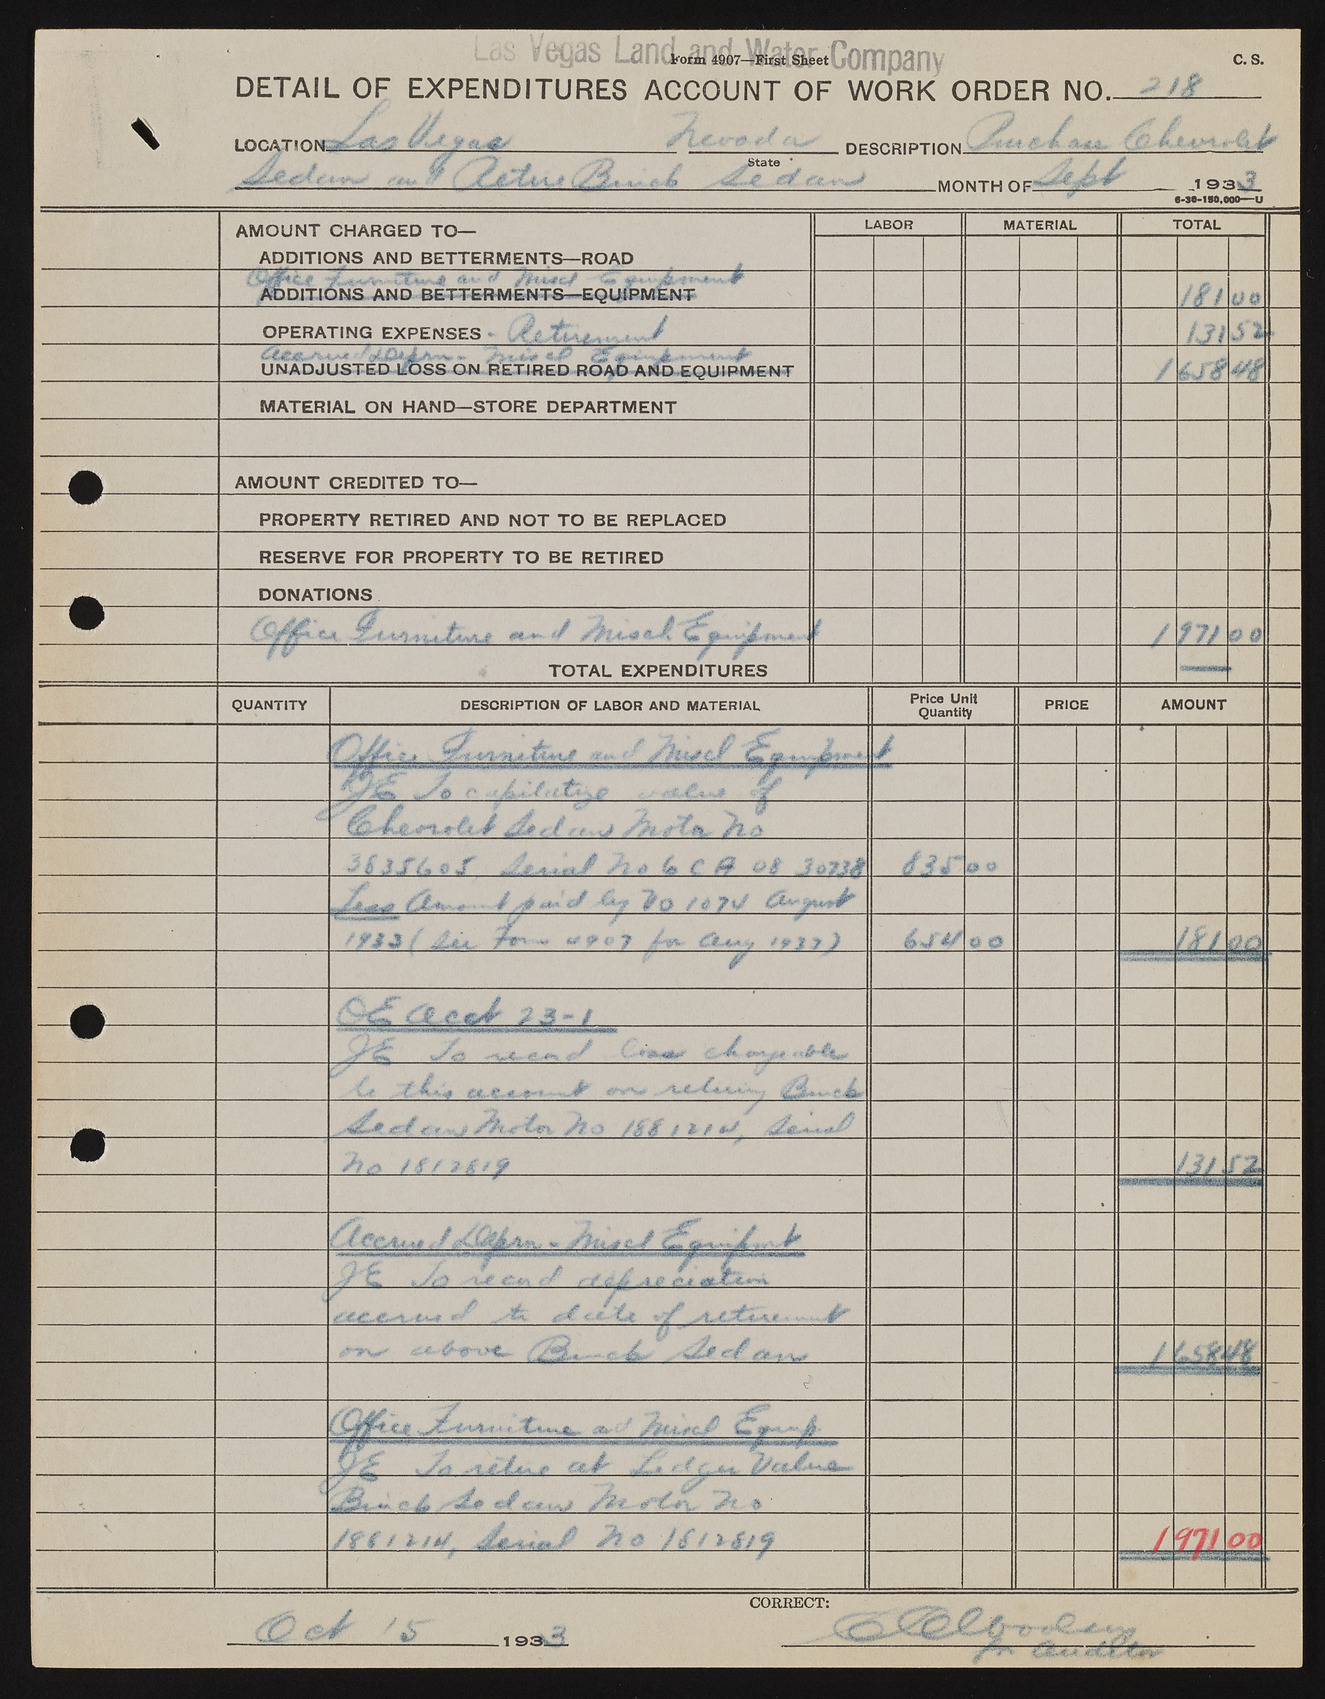 Las Vegas Land and Water Company
Form 4907—First Sheet
C. S.
DETAIL OF EXPENDITURES ACCOUNT OF WORK ORDER NO. 218
LOCATION Las Vegas Nevada DESCRIPTION Purchase Chevrolet
State
Sedan and Retire Buick Sedan MONTH OF Sept 1933
6-30-150,000—U
AMOUNT CHARGED TO— LABOR MATERIAL TOTAL
ADDITIONS AND BETTERMENTS—ROAD
Office Furniture and Miscl Equipment
ADDITIONS AND BETTERMENTS—EQUIPMENT 181 00
OPERATING EXPENSES - Retirement 131 52
Accrued Deprn - Miscl Equipment
UNADJUSTED LOSS ON RETIRED ROAD AND EQUIPMENT 1658 48
MATERIAL ON HAND—STORE DEPARTMENT
AMOUNT CREDITED TO—
PROPERTY RETIRED AND NOT TO BE REPLACED
RESERVE FOR PROPERTY TO BE RETIRED
DONATIONS
Office Furniture and Miscl Equipment 1971 00
TOTAL EXPENDITURES
QUANTITY DESCRIPTION OF LABOR AND MATERIAL Price Unit Quantity PRICE AMOUNT
Office Furniture and Miscl Equipment
JE To capilatize value of
Chevrolet Sedan Motor No
3835605, Serial No 6 C A 08 30738 835 00
Less Amount paid by VO 1074 August
1933 (See Form 4907 for Aug 1933) 654 00 181 00
OE Acct 23-1
JE To record loss chargeable
to this account on retiring Buick
Sedan Motor No 1881214, Serial
No 1812819 131 52
Accrued Deprn - Miscl Equipmt
JE To record depreciation
accrued to date of retirement
on above Buick Sedan 1658 48
Office Furniture and Miscl Equip
JE To retire at Ledger Value
Buick Sedan Motor No
1881214, Serial No 1812819 1971 00
CORRECT:
Oct 15 1933
for Auditor